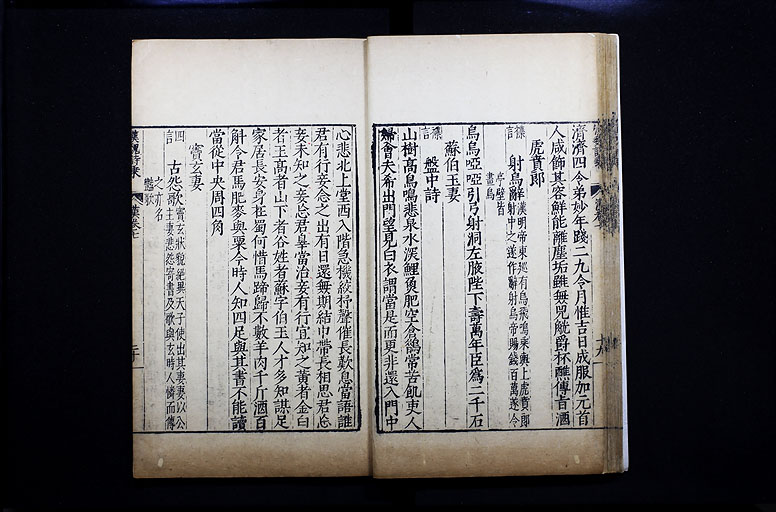 濟濟四令弟妙年踐二九令月惟吉日成服加元首
人咸飾其容鮮能離塵垢雖無兕觥爵杯醮傳旨酒
虎賁郎
雜言
射烏辭
漢明帝東巡有烏飛鳴乘輿上虎賁郎
射中之遂作辭射烏帝賜錢百萬遂令
亭壁皆
畫烏
烏烏啞啞引弓射洞左腋陛下壽萬年臣為二千石
蘇伯玉妻
雜言
盤中詩
山樹高鳥鳴悲泉水深鯉魚肥空倉鵲常苦飢吏人
婦會夫希出門望見白衣謂當是而更非還入門中
心悲北上堂西入階急機絞杼聲催長歎息當語誰
君有行妾念之出有日還無期結巾帶長相思君忘
妾未知之妾忘君辠當治妾有行宜知之黃者金白
者玉高者山下者谷姓者蘇字伯玉人才多知謀足
家居長安身在蜀何惜馬蹄歸不數羊肉千斤酒百
斛令君馬肥麥與粟今時人知四足與其書不能讀
當從中央周四角
竇玄妻
四言
古怨歌
竇玄狀貌絕異天子使出其妻妻以公
主妻悲怨寄書及歌與玄時人憐而傳
之亦名
豔歌
漢魏詩乘